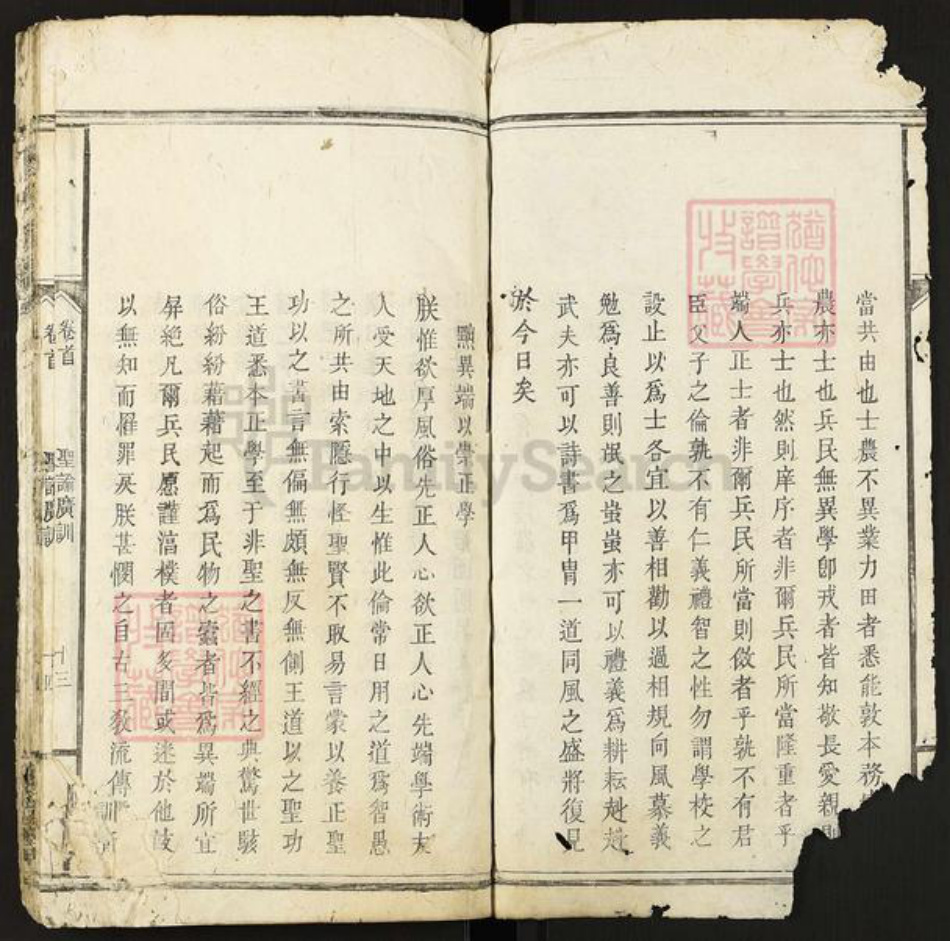 當共由也士農不異業力田者悉能敦本務
農亦士也兵民無異學即戎者皆知敬長愛親則
兵亦士也然則庠序者非爾兵民所當隆重者乎
端人正士者非爾兵民所當則傚者乎孰不有君
臣父子之倫孰不有仁義禮智之性勿謂學校之
設止以爲士各宜以善相勸以過相規向風慕義
勉爲良善則氓之蚩蚩亦可以禮義爲耕耘赳赳
武夫亦可以詩書爲甲冑一道同風之盛將復見
於今日矣
黜異端以崇正學
朕惟欲厚風俗先正人心欲正人心先端學術夫
人受天地之中以生惟此倫常日用之道爲智愚
之所共由索隱行怪聖賢不取易言蒙以養正聖
功以之書言無偏無頗無反無側王道以之聖功
王道悉本正學至于非聖之書不經之典驚世駭
俗紛紛藉藉起而爲民物之蠹者皆爲異端所宜
屏絶凡爾兵民愿謹湻樸者固多間或迷於他岐
以無知而罹罪戾朕甚憫之自古三教流傳
卷首 聖諭廣訓 十三
卷首
訓
FamilySearch